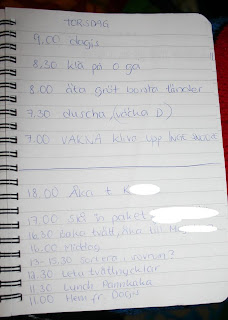 TORSDAG
9.00 dagis
8.30 klä på o ga
8.00 äta gröt borsta tänder
7.30 duscha, (väcka D)
7.00 VAKNA kliva upp
18.00 Åka t K
17.00 slå in paket
16.30 baka tvätt, åka till H
16.00 Middag
13-15.30 sortera i
12.30 Leta tvättnycklar
11.30 Lunch Pannkaka
11.00 Hem fr. Dagis